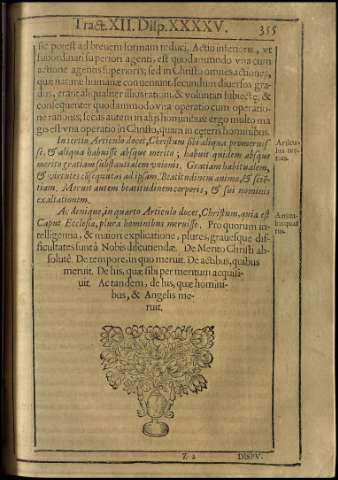 Tract. XII. Disp. XXXXV.
355
sic potest ad brevem formam reduci. Actio inferioris, ut
subordinati superiori agenti, est quodammodo una cum
actione agentis superioris; sed in Christo omnes actiones,
quæ naturæ humanæ conveniant secundum diversos gra-
dus, erant aliqualiter illustrationi, & voluntati subjectæ; &
consequenter quodammodo una operatio cum operatio-
ne rationis; secus autem in alijs hominibus: ergo multo ma-
gis est una operatio in Christo, quam in ceteris hominibus.
In tertio Articulo docet, Christum sibi aliqua promeruis-
se, & aliqua habuisse absque merito; habuit quidem absque
merito gratiam substantialem unionis. Gratiam habitualem,
& virtutes consequutas ad ipsam. Beatitudinem animæ, & scië-
tiam. Meruit autem beatitudinem corporis, & sui nominis
exaltationem.
Articu-
lus ter-
tius.
Ac denique, in quarto Articulo docet, Christum, quia est
Caput Ecclesiæ, plura hominibus meruisse. Pro quorum in-
telligentia, & maiori explicatione, plures, gravesque dif-
ficultates sunt à Nobis discutiendæ. De Merito Christi ab-
solutè. De tempore, in quo meruit. De actibus, quibus
meruit. De his, quæ sibi per meritum acquisi-
vit. Ac tandem, de his, quæ homini-
bus, & Angelis me-
ruit.
Z 2
DISPV-